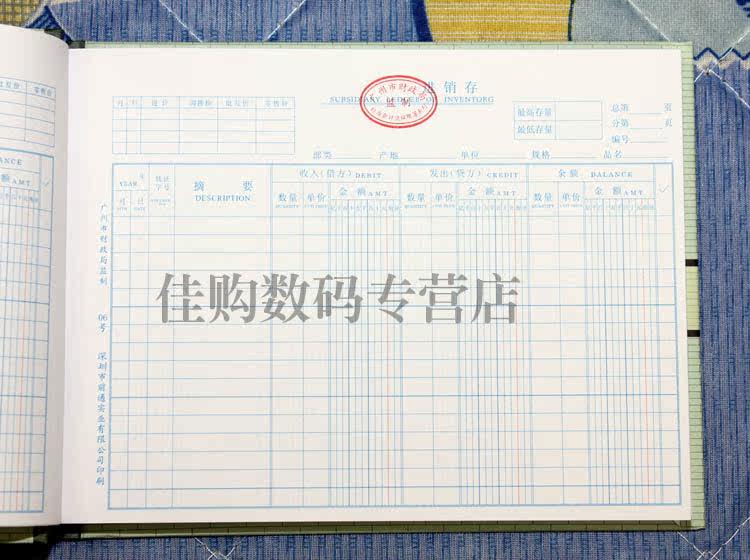 批发价 零售价
进销存
SUBSIDIARY LEDGER OF INVENTORG
广州市财政局
监制
月 日 进价 调拨价 批发价 零售价
最高存量
最低存量
总第 页
分第 页
编号
部类 产地 单位 规格 品名
LANCE
额 AMT
年
YEAR
月 日
凭证
字号
摘 要
DESCRIPTION
收入(借方) DEBIT
发出(贷方) CREDIT
余额 BALANCE
数量 单价 金额 AMT
数量 单价 金额 AMT
数量 单价 金额 AMT
广州市财政局监制
06号
佳购数码专营店